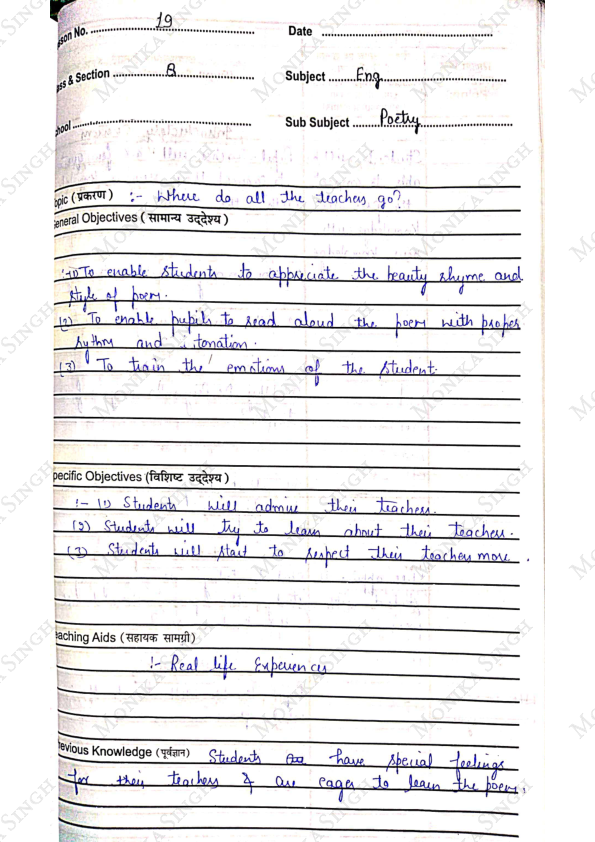 sson No. 19
Date
ass & Section B
Subject Eng
hool
Sub Subject Poetry
opic (प्रकरण) :- Where do all the teachers go?
General Objectives (सामान्य उद्देश्य)
:- (1) To enable students to appreciate the beauty rhyme and
style of poem.
(2) To enable pupils to read aloud the poem with proper
rythm and itonation.
(3) To train the emotions of the student.
pecific Objectives (विशिष्ट उद्देश्य)
:- (1) Students will admire their teachers.
(2) Students will try to learn about their teachers.
(3) Students will start to respect their teachers more.
eaching Aids (सहायक सामग्री)
:- Real life Experiences
revious Knowledge (पूर्वज्ञान) Students have special feelings
for their teachers & are eager to learn the poem.
MONIKA SINGH